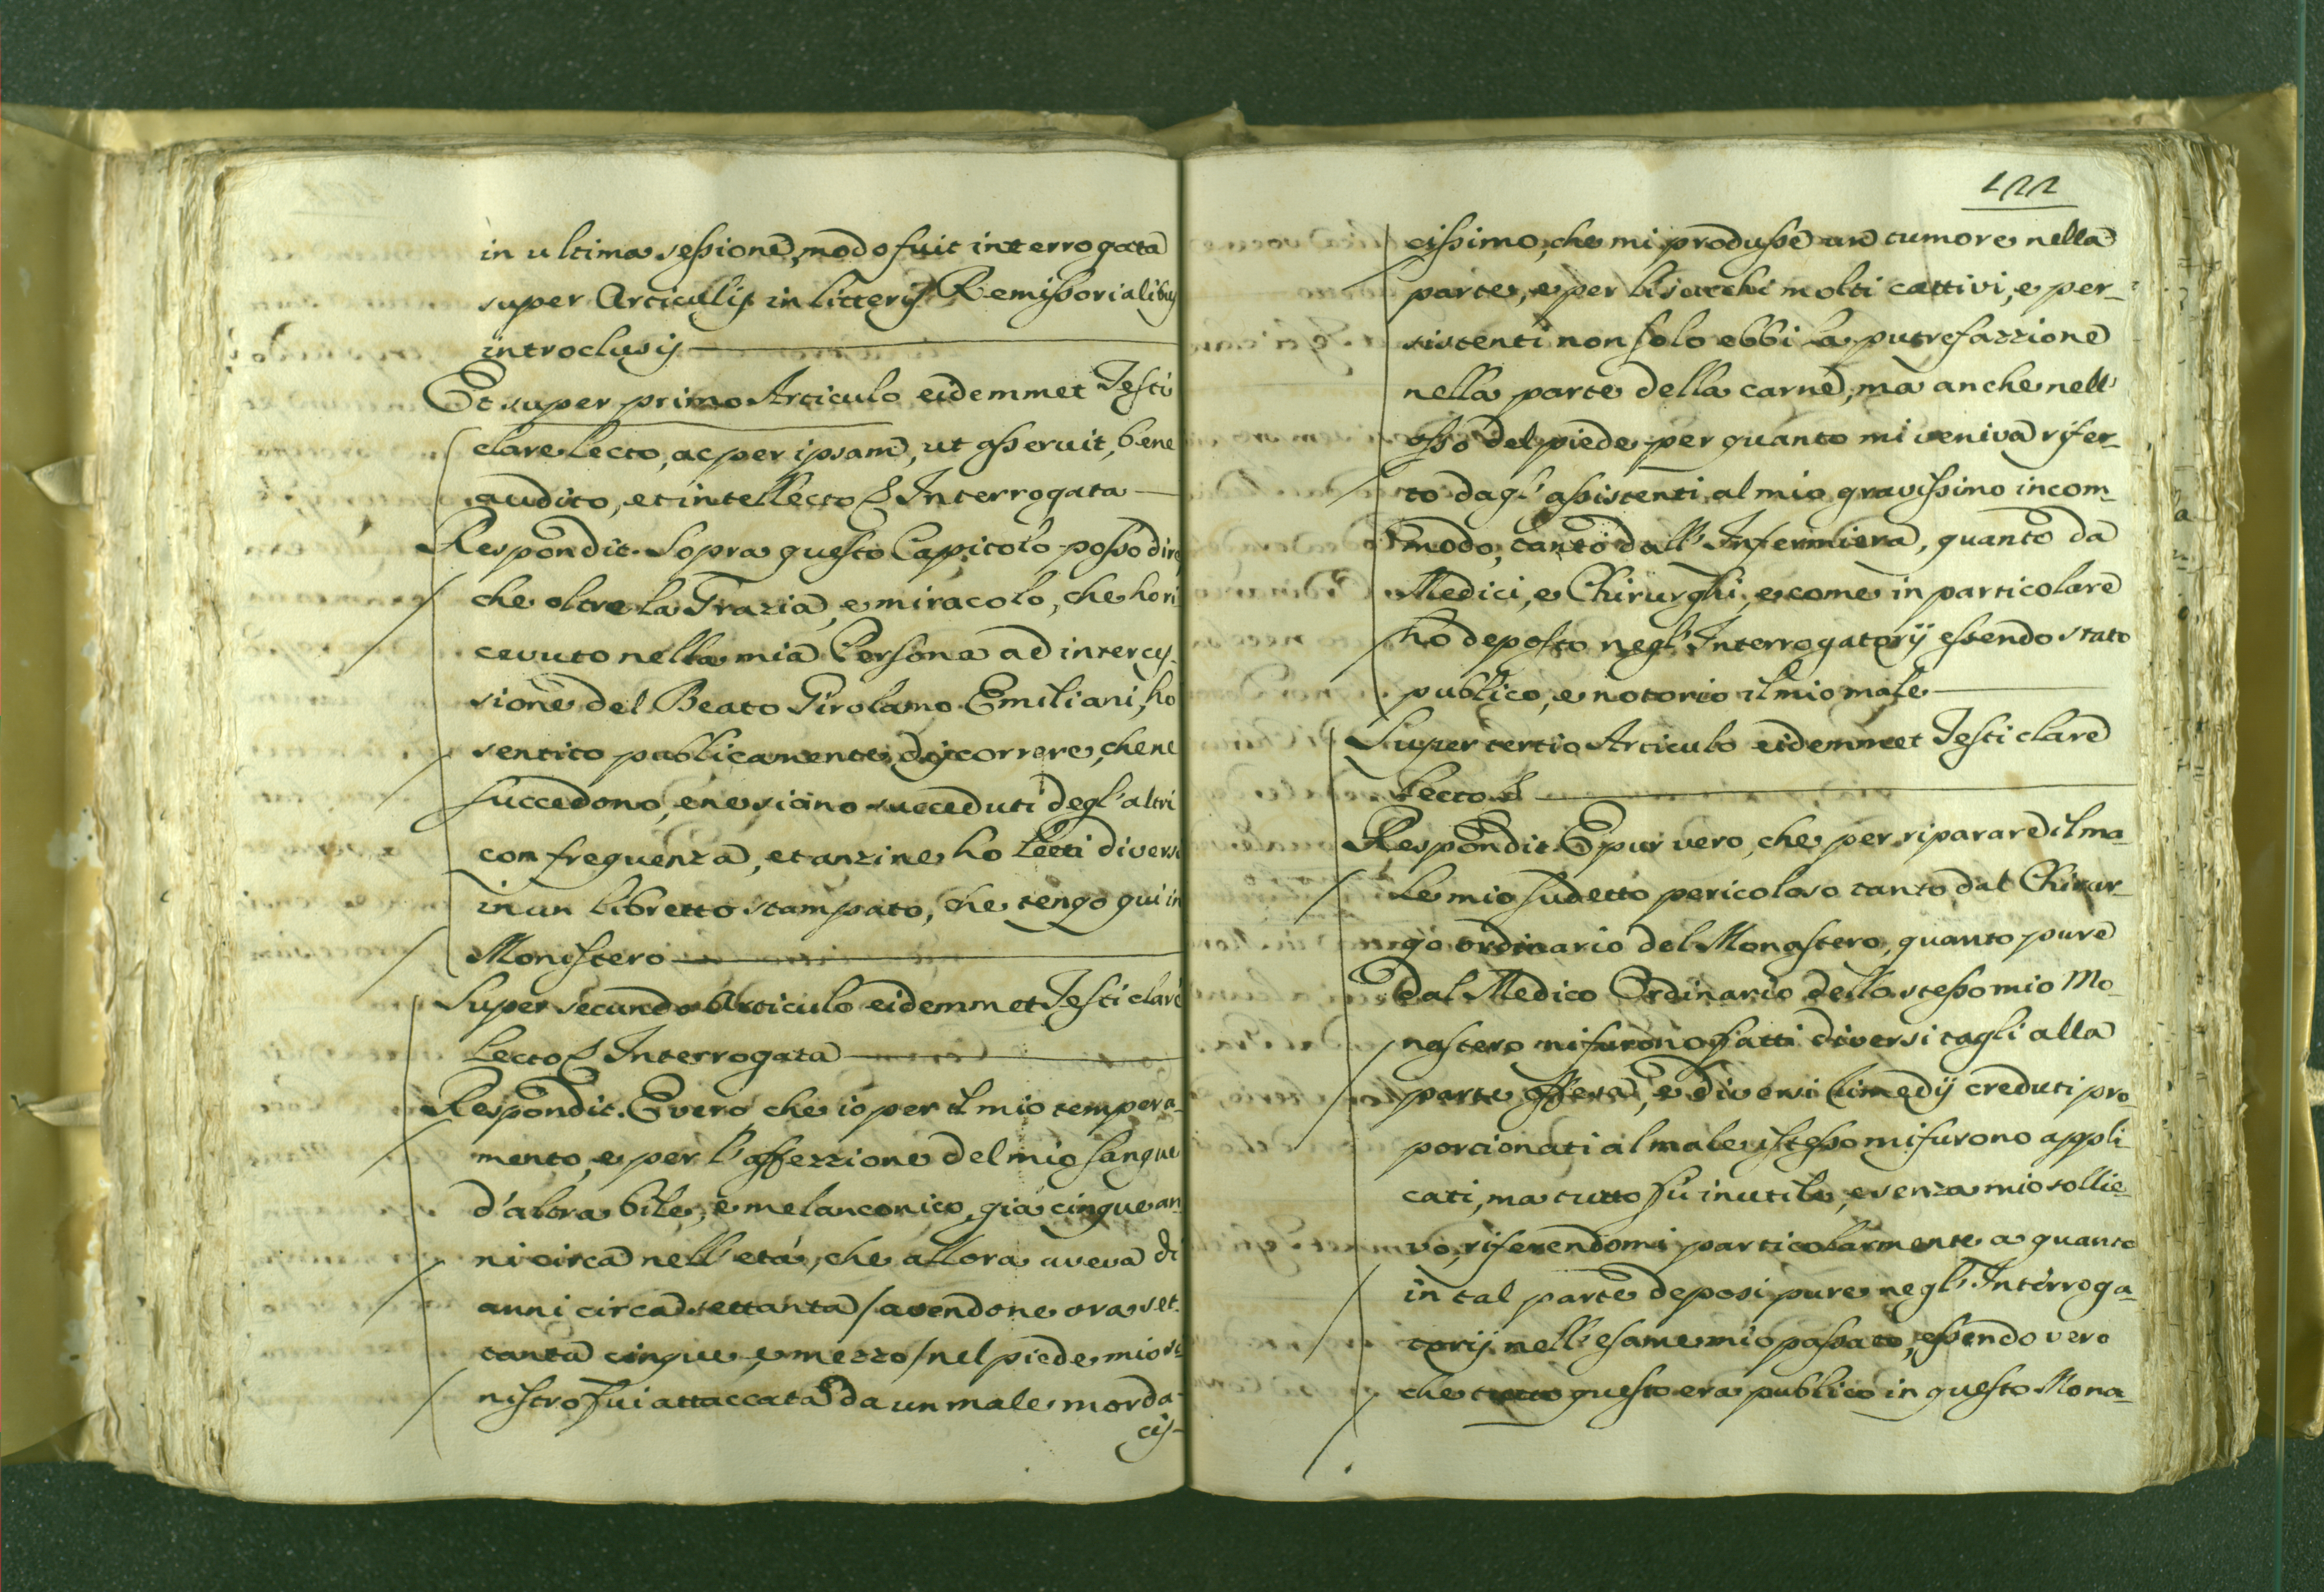 in ultima sessione, modo fuit interrogata
super Articulis in litteris Remissorialibus
introclusis
Et super primo Articulo eidemmet Testi
clare lecto, ac per ipsam, ut asseruit, bene
audito, et intellecto & Interrogata
Respondit. Sopra questo Capitolo posso dire
che oltre la Grazia, e miracolo, che ho ri
cevuto nella mia Persona ad interces-
sione del Beato Girolamo Emiliani, ho
sentito publicamente discorrere, che ne
succedono, e ne siano succeduti degl'altri
con frequenza, et anzi ne ho letti diversi
in un libretto stampato, che tengo quì in
Monistero
Super secundo Articulo eidemmet Testi clare
lecto & Interrogata
Respondit. E vero che io per il mio tempera-
mento, e per l'affezzione del mio sangue
d'altra bile, e melanconico, già cinque an
ni circa nell'età, che allora aveva di
anni circa settanta / avendone ora set-
tanta cinque, e mezzo / nel piede mio si
nistro fui attaccata da un male morda-
cis-
122
cissimo, che mi produsse un tumore nella
parte, e per li molti cattivi, e per-
sistenti non solo ebbi la putrefazzione
nella parte della carne, ma anche nell'
osso del piede per quanto mi veniva rifer-
to dagl'assistenti al mio gravissimo incom-
modo, tanto dall'Infermiera, quanto da
Medici, e Chirurghi, e come in particolare
hò deposto negl'Interrogatorij essendo stato
publico, e notorio il mio male
Super tertio Articulo eidemmet Testi clare
lecto &
Respondit. E pur vero, che per riparare il ma-
le mio sudetto pericoloso tanto dal Chirur-
go ordinario del Monastero, quanto pure
dal Medico Ordinario dello stesso mio Mo-
nastero mi furono fatti diversi tagli alla
parte offesa, e diversi rimedij creduti pro-
porcionati al male istesso mi furono appli-
cati, ma tutto fù inutile, e senza mio sollie-
vo, riferendomi particolarmente a quanto
in tal parte deposi pure negl'Interroga-
torij nell'esame mio passato, essendo vero
che tutto questo era publico in questo Mona-